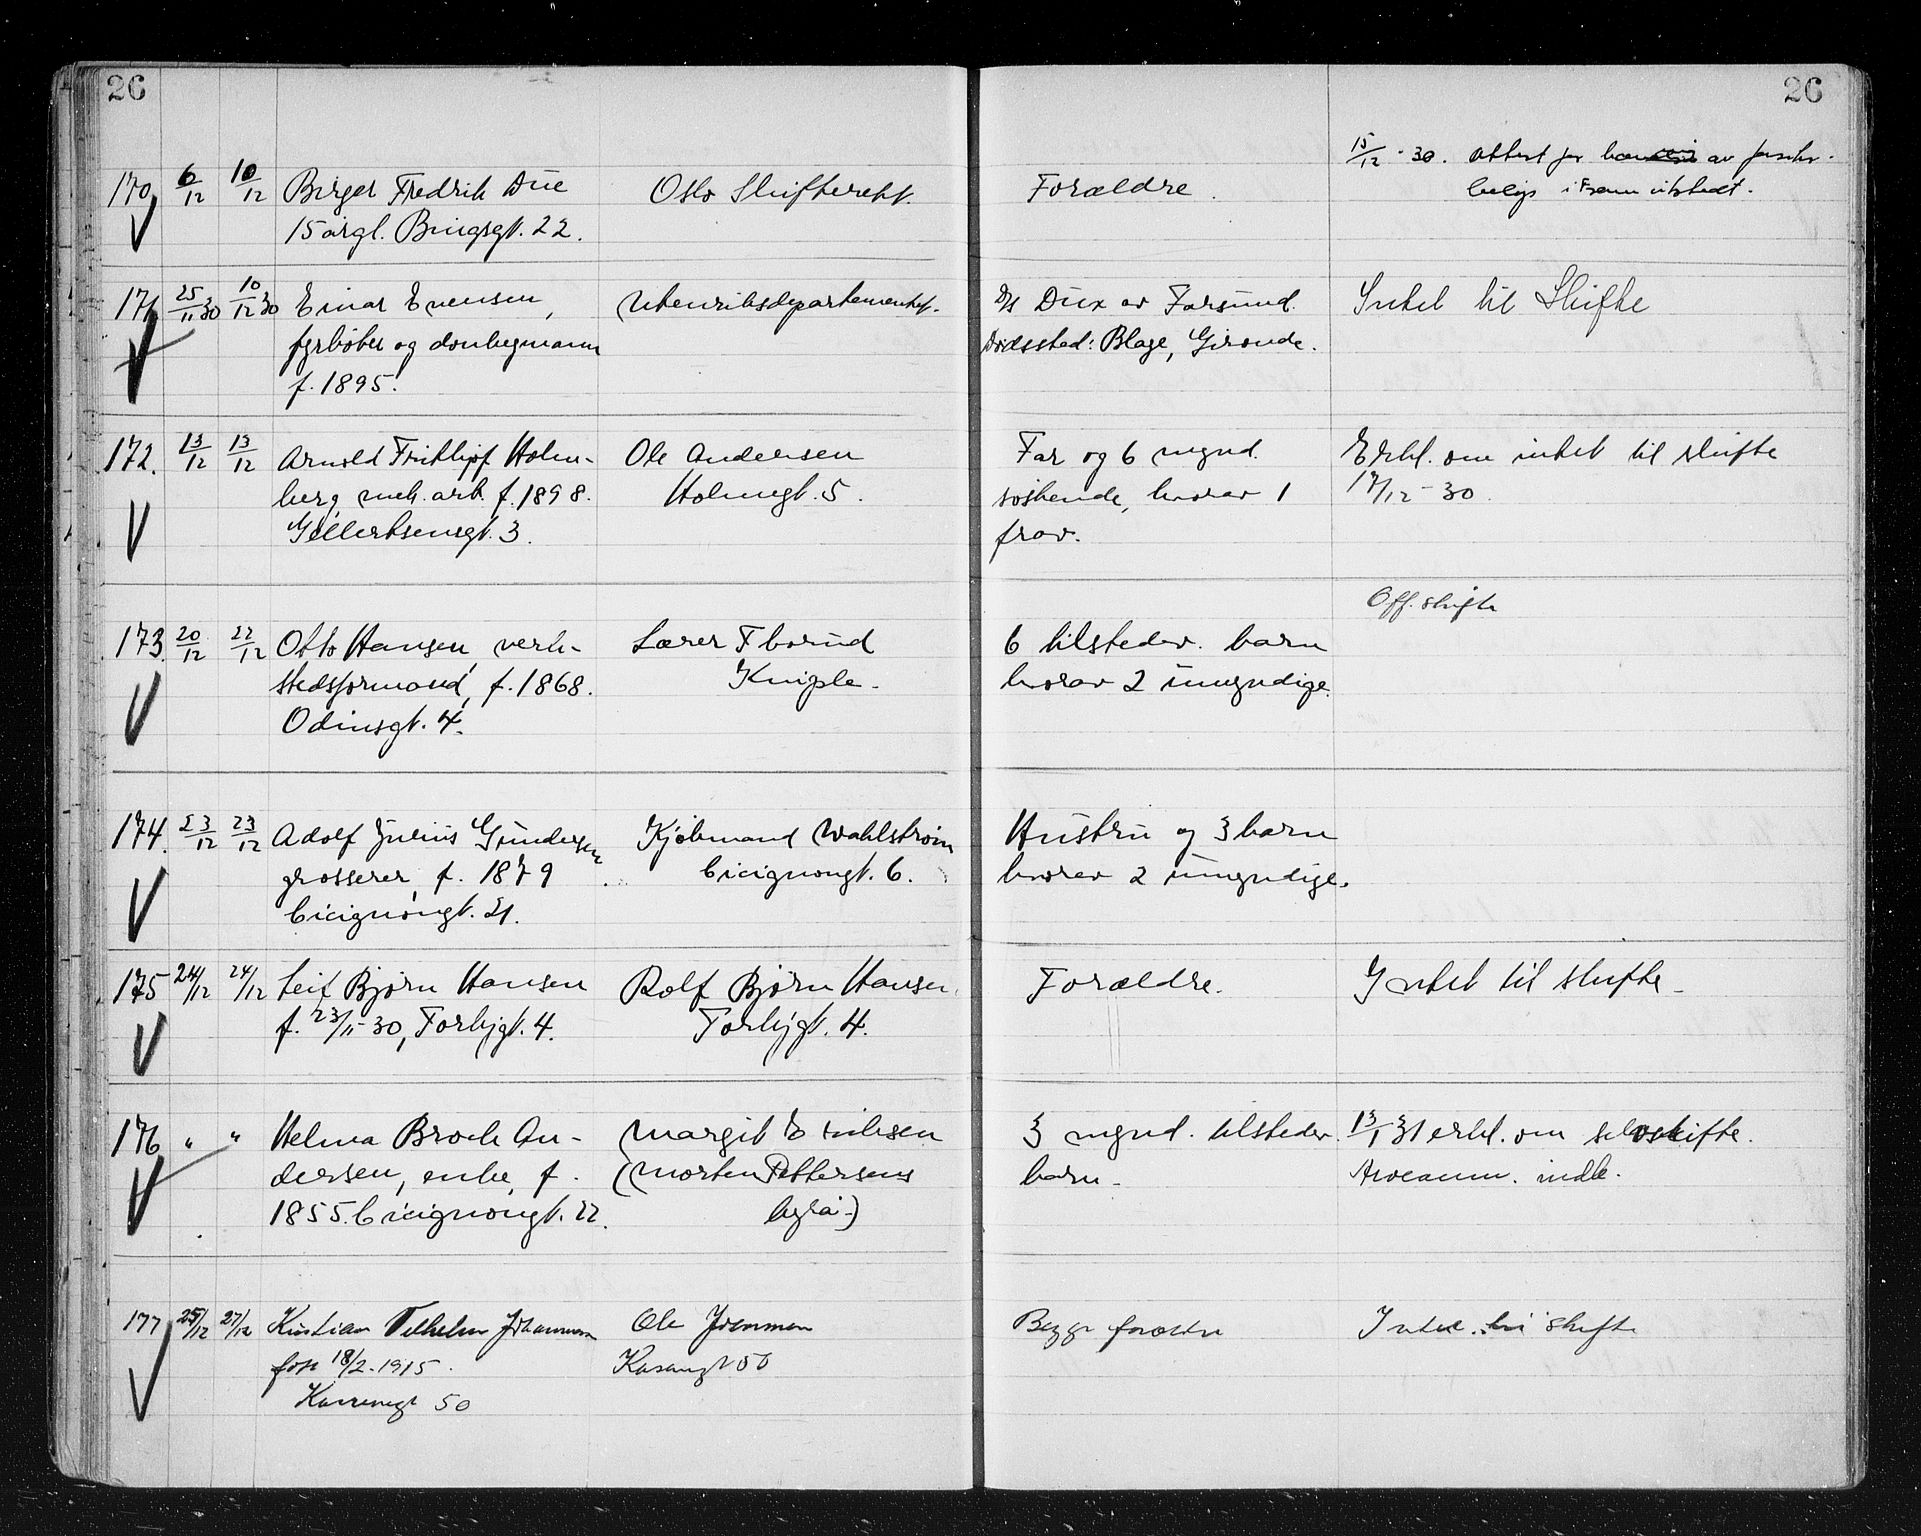 26
26
170 6/12 10/12 Birger Fredrik Due Oslo Skifterett. Forældre. 15/12 - 30. Attest for av forsikr.
15 årgl. Bingsgt. 22. i Fram utstedt.
171 25/11 30 10/12 30 Einar Evensen, Utenriksdepartementet. D/S Dux av Farsund. Intet til Skifte
fyrbøter og donkeymann Dødssted: Blaye, Gironde.
f. 1895.
172. 13/12 13/12 Arnold Frithjof Holm- Ole Andersen Far og 6 mynd. Erkl. om intet til skifte
berg, mek. arb. f. 1898. Holmegt. 5. søskende, hvorav 1 17/12 - 30.
Gellertsensgt. 3. frav.
Off. skifte
173. 20/12 22/12 Otto Hansen, verk- Lærer Thorud 6 tilstedev. barn
stedsformand, f. 1868. Kniple. hvorav 2 umyndige.
Odinsgt. 4.
174. 23/12 23/12 Adolf Julius Gundersen Kjøbmand Wahlstrøm Hustru og 3 barn
grosserer, f. 1879 Cicignongt. 6. hvorav 2 umyndige.
Cicignongt. 21.
175 24/12 24/12 Leif Bjørn Hansen Rolf Bjørn Hansen, Forældre. Intet til skifte.
f. 23/11-30, Torbjgt. 4. Torbjgt. 4.
176 " " Helma Brock An- Margit Eriksen 3 mynd. tilstedev. 13/1 31 erkl. om selvskifte.
dersen, enke, f. (Morten Pettersens barn. Arveanm. indk.
1855. Cicignongt. 22. byrå.)
177 25/12 27/12 Kristian Vilhelm Johannessen Ole Begge forældre Intet til skifte
født 18/2. 1915. 50
50